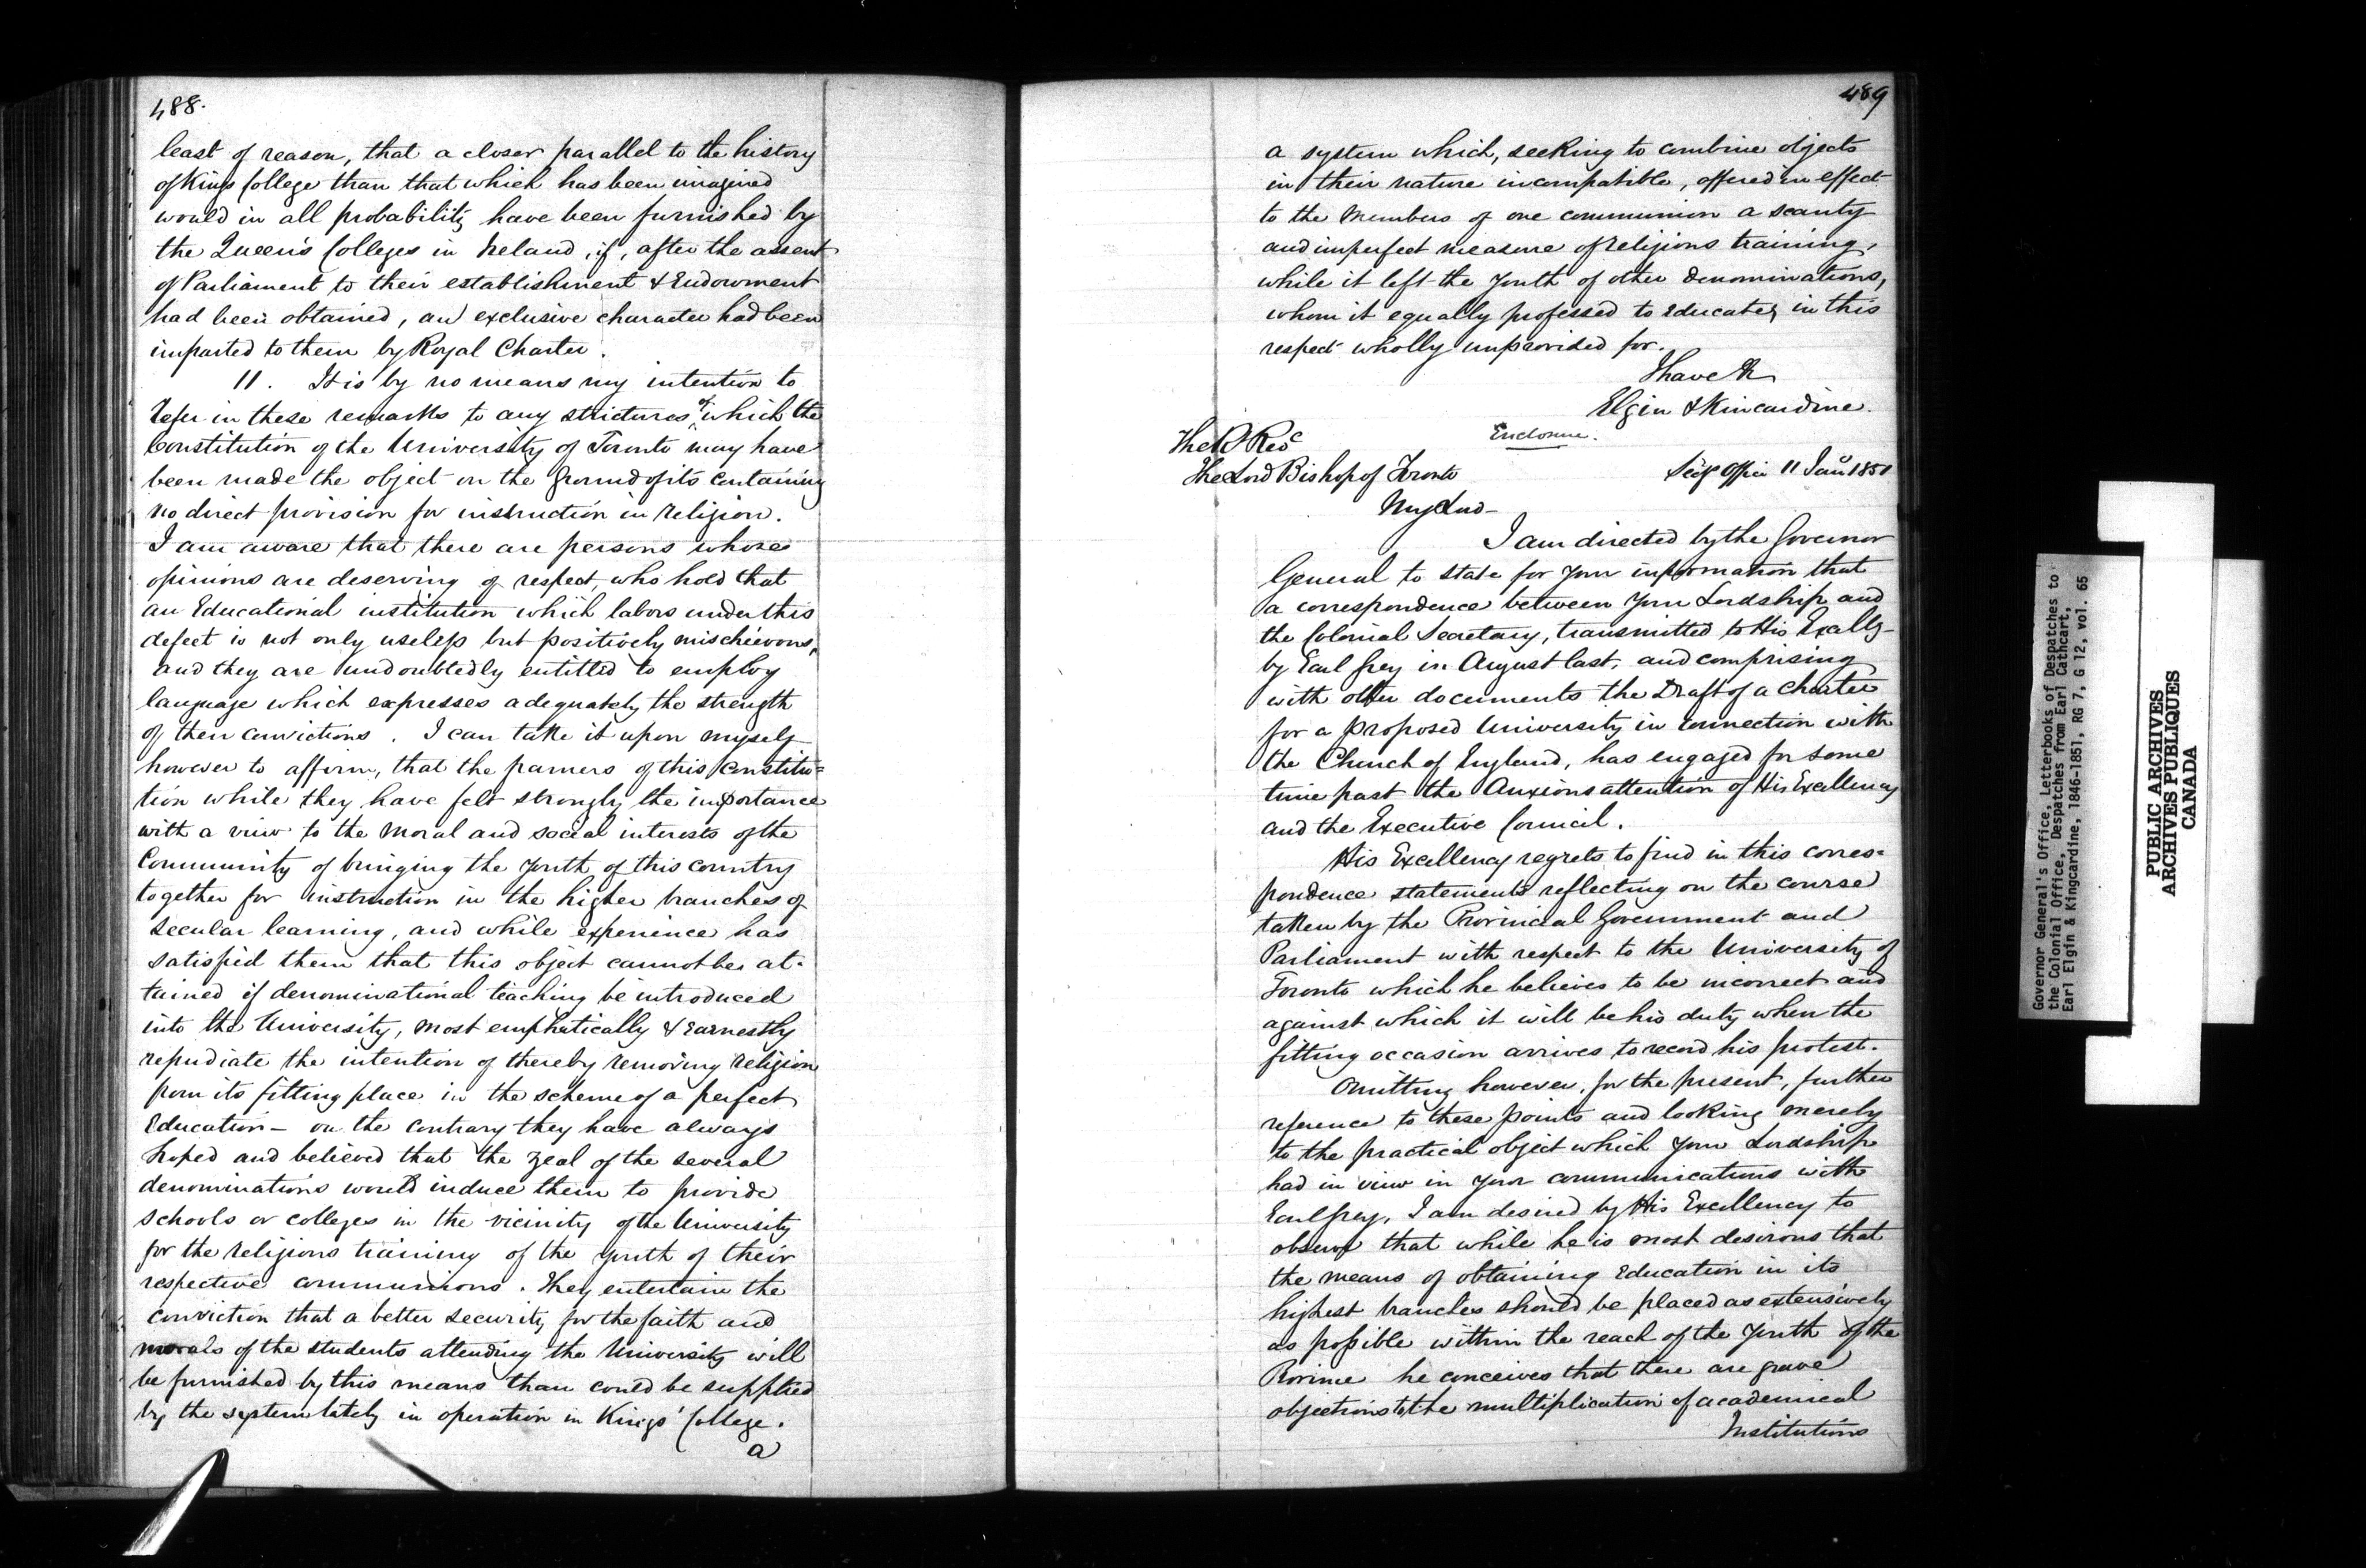 488.
least of reason, that a closer parallel to the history
of Kings College than that which has been imagined
would in all probability have been furnished by
the Queen's Colleges in Ireland, if, after the assent
of Parliament to their establishment & Endowment
had been obtained, an exclusive character had been
imparted to them by Royal Charter.
11. It is by no means my intention to
refer in these remarks to any strictures of which the
Constitution of the University of Toronto may have
been made the object on the ground of its containing
no direct provision for instruction in religion.
I am aware that there are persons whose
opinions are deserving of respect, who hold that
an Educational institution which labors under this
defect is not only useless but positively mischievous,
and they are undoubtedly entitled to employ
language which expresses adequately the strength
of their convictions. I can take it upon myself
however to affirm, that the framers of this Constitu=
tion while they have felt strongly the importance
with a view to the moral and social interests of the
Community of bringing the youth of this country
together for instruction in the higher branches of
secular learning, and while experience has
satisfied them that this object cannot be at-
tained if denominational teaching be introduced
into the University, most emphatically & earnestly
repudiate the intention of thereby removing religion
from its fitting place in the scheme of a perfect
Education - on the contrary they have always
hoped and believed that the zeal of the several
denominations would induce them to provide
schools or colleges in the vicinity of the University
for the religious training of the youth of their
respective communions. They entertain the
conviction that a better security for the faith and
morals of the students attending the University will
be furnished by this means than could be supplied
by the system lately in operation in Kings' College.
a
489
a system which, seeking to combine objects
in their nature incompatible, offered in effect
to the Members of one communion a scanty
and imperfect measure of religious training,
while it left the youth of other denominations,
whom it equally professed to educate, in this
respect wholly unprovided for.
I have &c
Elgin & Kincardine.
Enclosure.
The R. Revd
The Lord Bishop of Toronto
Secy's Office 11 Jany 1851
My Lord -
I am directed by the Governor
General to state for your information that
a correspondence between your Lordship and
the Colonial Secretary, transmitted to His Excelly -
by Earl Grey in August last, and comprising
with other documents the Draft of a Charter
for a proposed University in connection with
the Church of England, has engaged for some
time past the Anxious attention of His Excellency
and the Executive Council.
His Excellency regrets to find in this corres=
pondence statements reflecting on the course
taken by the Provincial Government and
Parliament with respect to the University of
Toronto which he believes to be incorrect and
against which it will be his duty when the
fitting occasion arrives to record his protest.
Omitting however, for the present, further
reference to these points and looking merely
to the practical object which your Lordship
had in view in your communications with
Earl Grey, I am desired by His Excellency to
observe that while he is most desirous that
the means of obtaining Education in its
highest branches should be placed as extensively
as possible within the reach of the youth of the
Province he conceives that there are grave
objections to the multiplication of academical
Institutions
Governor General's Office, Letterbooks of Despatches to
the Colonial Office, Despatches from Earl Cathcart,
Earl Elgin & Kingcardine, 1846-1851, RG 7, G 12, vol. 65
PUBLIC ARCHIVES
ARCHIVES PUBLIQUES
CANADA